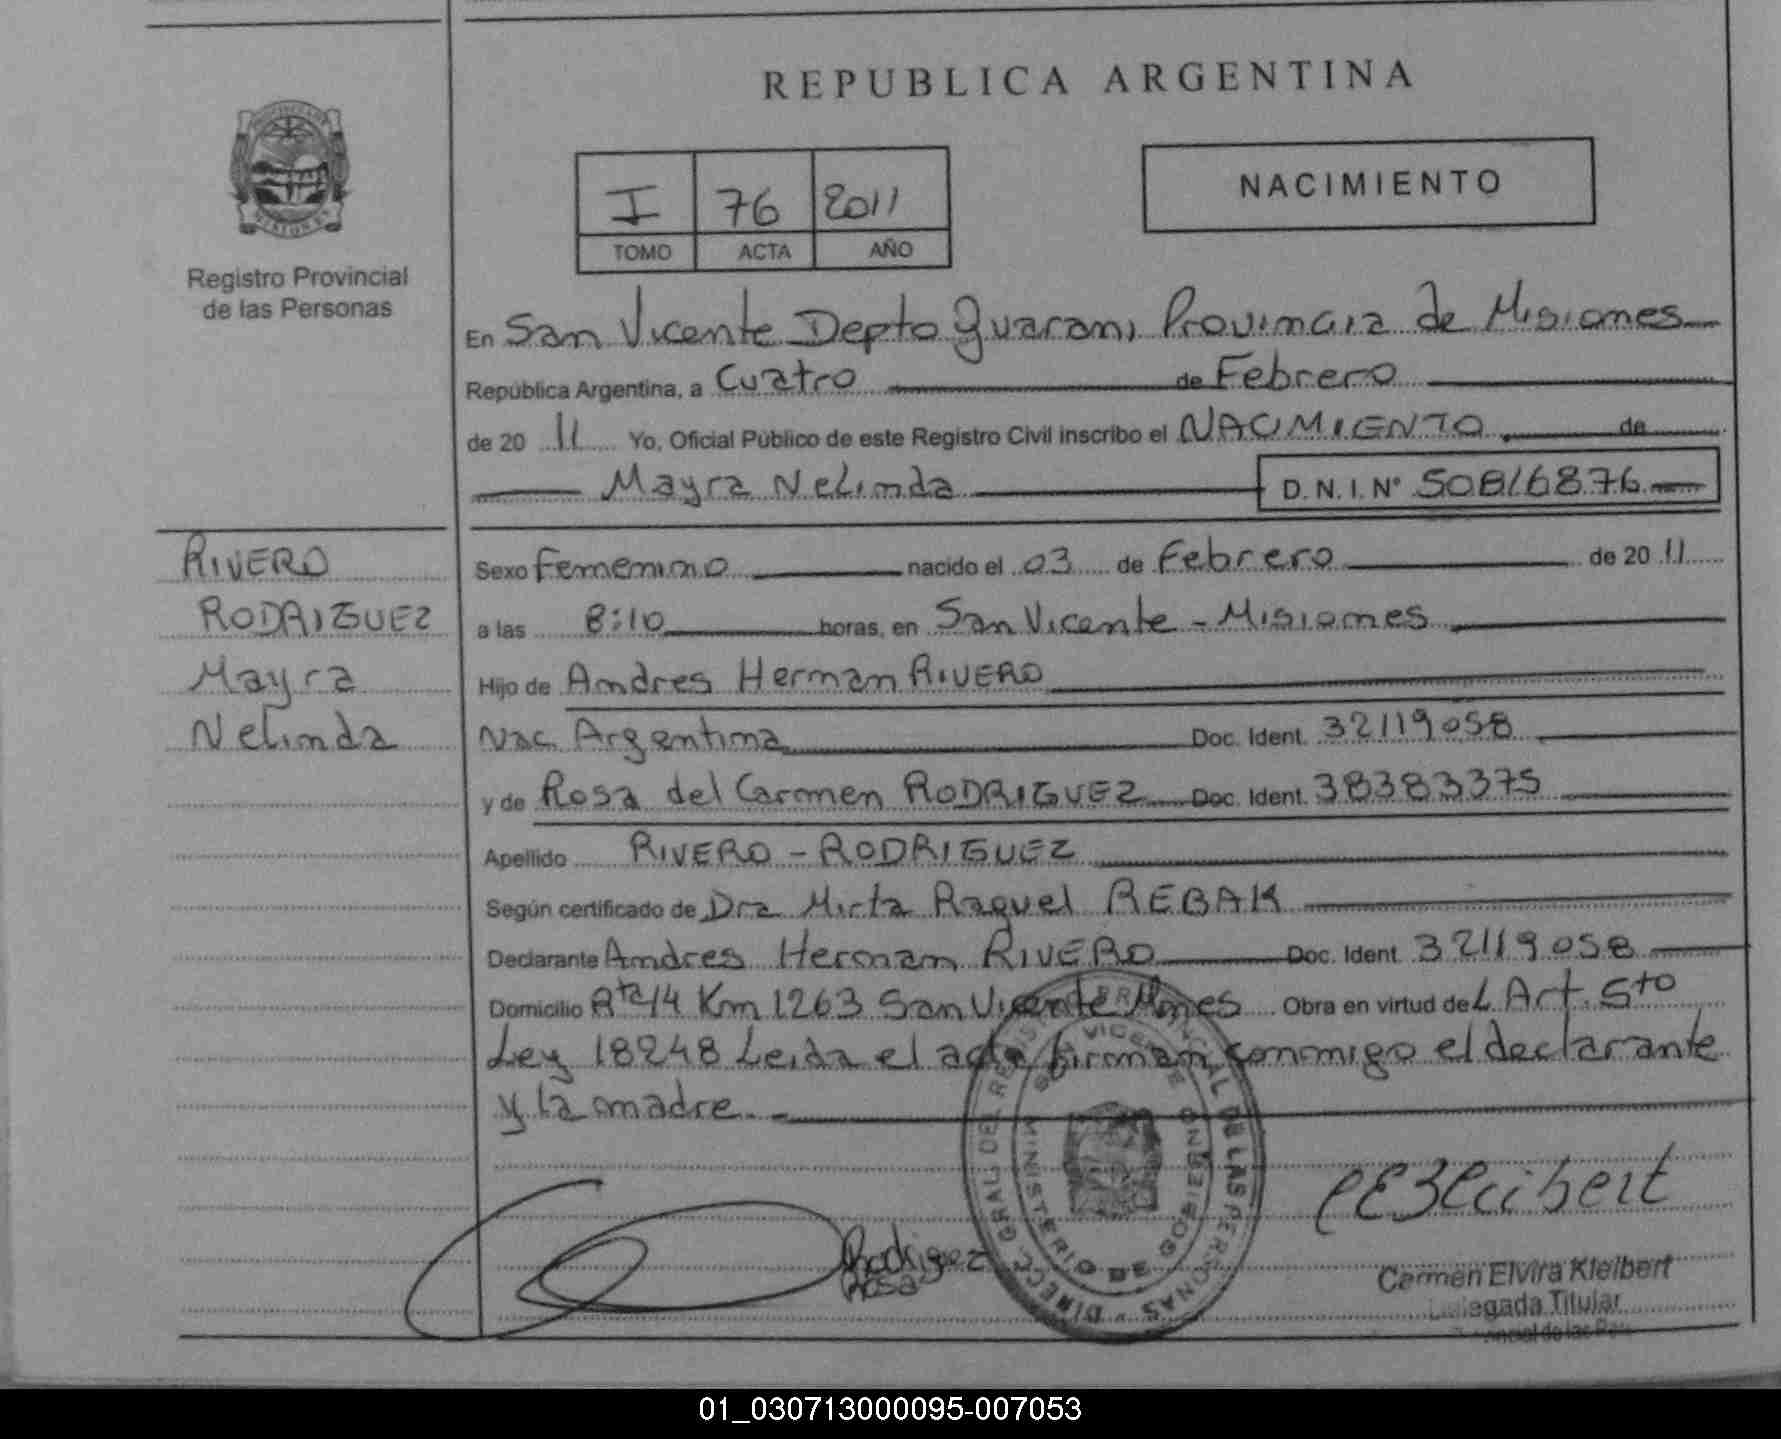 REPUBLICA ARGENTINA
NACIMIENTO
I 76 2011
TOMO ACTA AÑO
Registro Provincial
de las Personas
En San Vicente Depto Guarani Provincia de Misiones
República Argentina, a Cuatro de Febrero
de 20 11 Yo, Oficial Público de este Registro Civil inscribo el NACIMIENTO de
Mayra Nelinda D.N.I. N° 50816876
RIVERO
RODRIGUEZ
Mayra
Nelinda
Sexo Femenino nacido el 03 de Febrero de 20 11
a las 8:10 horas, en San Vicente - Misiones
Hijo de Andres Hernan RIVERO
Nac. Argentina Doc. Ident. 32119058
y de Rosa del Carmen RODRIGUEZ Doc. Ident. 38383375
Apellido RIVERO - RODRIGUEZ
Según certificado de Dra Mirta Raquel REBAK
Declarante Andres Hernan RIVERO Doc. Ident. 32119058
Domicilio Rta 14 Km 1263 San Vicente Mnes Obra en virtud de L Art. 5to
Ley 18248 Leida el acta firman conmigo el declarante
y la madre.
DIRECC. GRAL. DEL REGISTRO PROVINCIAL DE LAS PERSONAS
MINISTERIO DE GOBIERNO
SAN VICENTE
Rodriguez
Rosa
CEKleibert
Carmen Elvira Kleibert
Delegada Titular
01_030713000095-007053